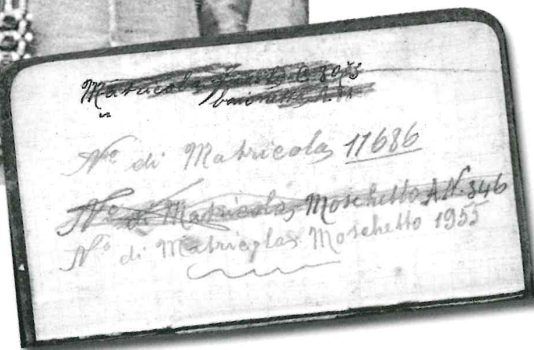 Matricola
baionetta
N° di Matricola 11686
N° di Matricola Moschetto A.N. 346
N° di Matricola Moschetto 1955